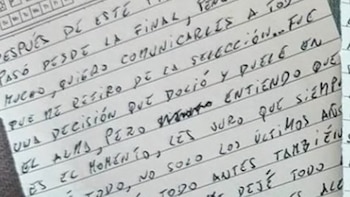 DESPUÉS DE ESTE
PASÓ DESDE LA FINAL,
MUCHO, QUIERO COMUNICARLES A TOD
QUE ME RETIRO DE LA SELECCIÓN.. FUE
UNA DECISIÓN QUE DOLIÓ Y DUELE EN
EL ALMA, PERO ENTIENDO QUE
ES EL MOMENTO, LES JURO QUE SIEMP
TODO, NO SOLO LOS ÚLTIMOS AÑOS
TODO ANTES TAMBIÉN
DEJÉ TODO